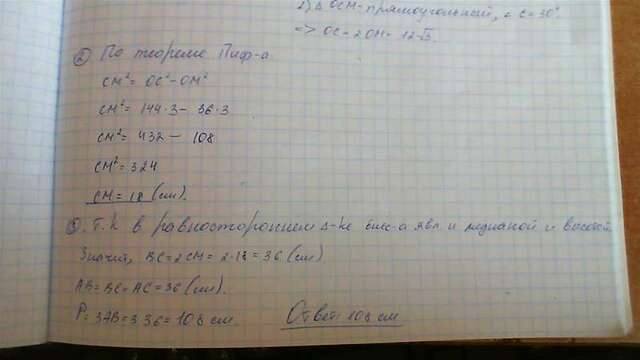 2) Δ OCM-прямоугольный, ∠C=30°.
=> OC=2OM= 12√3.
② По теореме Пиф-а
CM²= OC²-OM²
CM²= 144·3- 36·3
CM²= 432- 108
CM²=324
CM=18 (см).
③. Т.к в равностороннем Δ-ке бисс-а явл. и медианой и высотой.
Значит, BC=2CM= 2·18=36 (см)
AB=BC=AC=36(см).
P=3AB=3·36=108 см. Ответ: 108 см